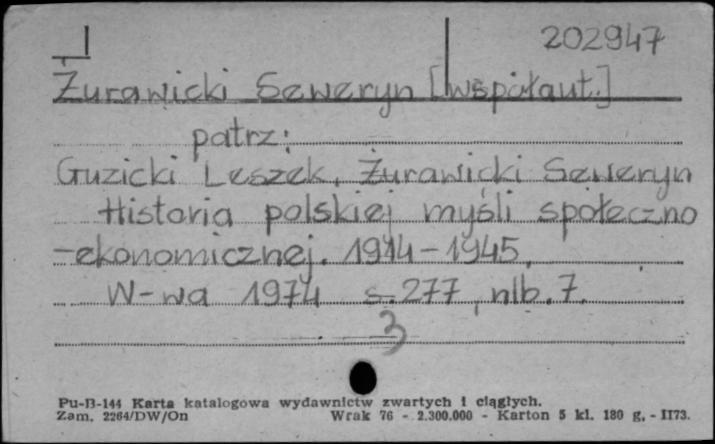 202947
Żurawicki Seweryn [współaut.]
patrz:
Guzicki Leszek, Żurawicki Seweryn
Historia polskiej myśli społeczno
-ekonomicznej. 1914-1945.
W-wa 1974 s. 277, nlb. 7.
3
Pu-B-144 Karta katalogowa wydawnictw zwartych i ciągłych.
Zam. 2264/DW/On Wrak 76 - 2.300.000 - Karton 5 kl. 180 g. - II73.